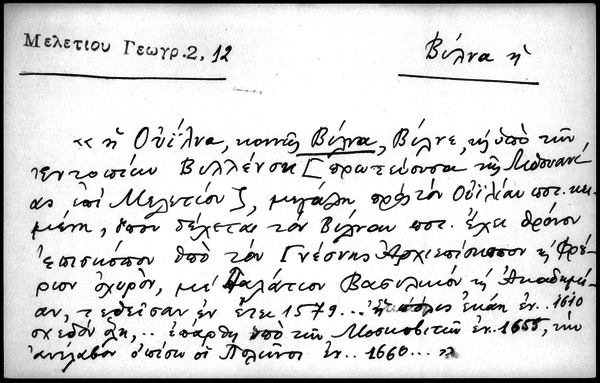 Μελετίου Γεωγρ. 2, 12
Βίλνα ἡ
« ἡ Οὐΐλνα, κοινῶς Βίλνα, Βίλνε, κ ὑπὸ τῶν
ἐντοπίων Βιλλένσκι [πρωτεύουσα τῆς Λιθουανί
ας ἐπὶ Μελετίου], μεγάλη πρὸς τὸν Οὐΐλιαν ποτ. κει
μένη, ὅπου δέχεται τὸν Βίλναν ποτ. ἔχει θρόνον
ἐπισκόπου ὑπὸ τὸν Γνέσνης Ἀρχιεπίσκοπον κ φρού
ριον ὀχυρόν, μὲ Παλάτιον Βασιλικὸν κ Ἀκαδημί
αν, τεθεῖσαν ἐν ἔτει 1579... ἡ πόλις ἐκάη ἐν.. 1610
σχεδὸν ὅλη,.. ἐπάρθη ὑπὸ τῶν Μοσκοβιτῶν ἐν. 1655, τὴν
ἀνέλαβον ὀπίσω οἱ Πολῶνοι ἐν.. 1660... »